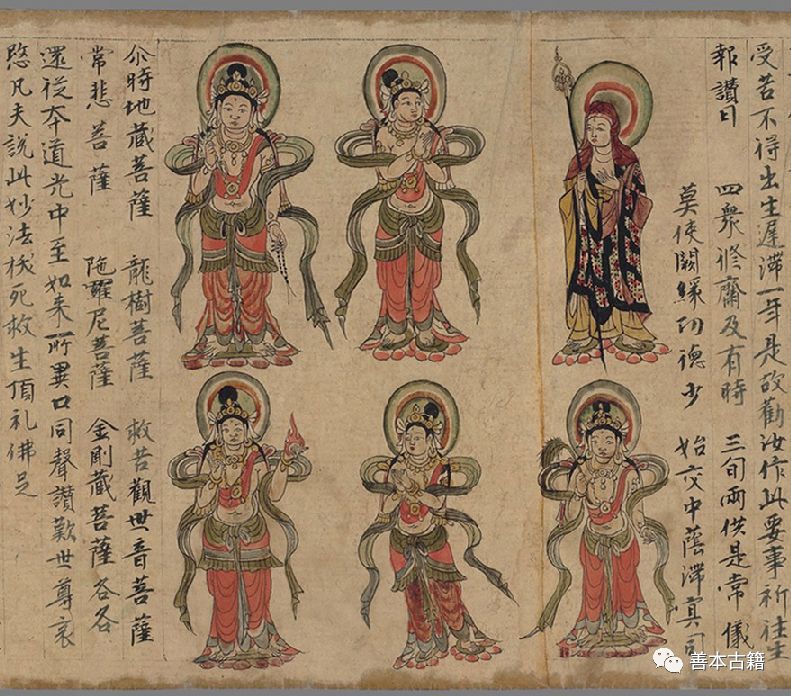 受苦不得出生遲滯一年是故勸汝作此要事祈往生
報讚曰 四衆修齋及有時 三旬兩供是常儀
莫使闕緣功德少 始交中蔭滯冥司
尒時地藏菩薩 龍樹菩薩 救苦觀世音菩薩
常悲菩薩 陁羅尼菩薩 金剛藏菩薩各各
還從本道光中至如来所異口同聲讚歎世尊哀
愍凡夫說此妙法拔死救生頂礼佛足
善本古籍